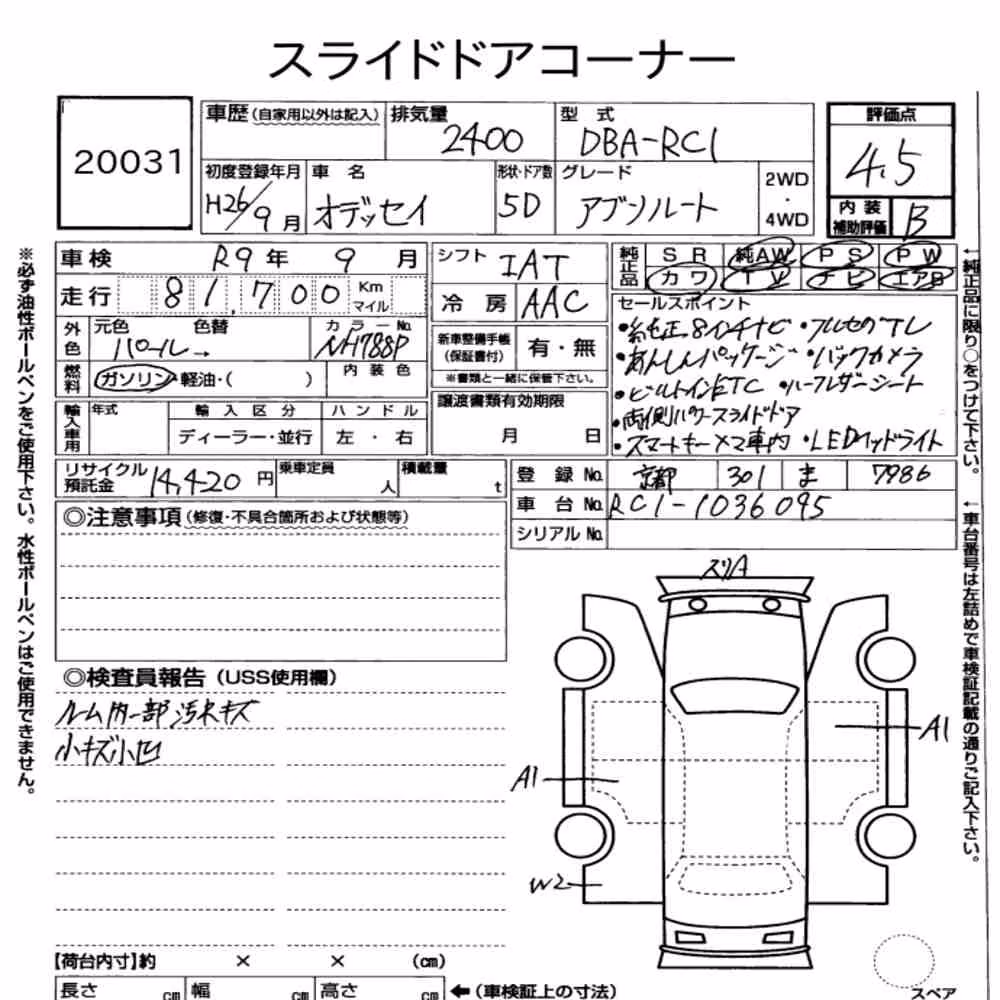 スライドドアコーナー
20031
車歴(自家用以外は記入) 排気量 2400 型式 DBA-RC1 評価点 4.5
初度登録年月 H26/9月 車名 オデッセイ 形状・ドア数 5D グレード アブソルート 2WD・4WD
内装補助評価 B
車検 R9年 9月 シフト IAT 純正品 SR 純AW PS PW
走行 81,700 Km マイル 冷房 AAC カワ TV ナビ エアB
外色 元色 パール→ 色替 カラーNo. NH788P
新車整備手帳(保証書付) 有・無
※書類と一緒に保管下さい。
燃料 ガソリン・軽油・( ) 内装色
セールスポイント
・純正8インチナビ ・フルセグTV
・あんしんパッケージ ・バックカメラ
・ビルトインETC ・ハーフレザーシート
・両側パワースライドドア
・スマートキー×2車内 ・LEDヘッドライト
輸入車用 年式 輸入区分 ディーラー・並行 ハンドル 左・右
譲渡書類有効期限 月 日
リサイクル預託金 14,420円 乗車定員 人 積載量 t
登録No. 京都 301 ま 7986
車台No. RC1-1036095
シリアルNo.
◎注意事項(修復・不具合箇所および状態等)
◎検査員報告(USS使用欄)
ルーム内一部汚れキズ
小キズ小凹
スリA
A1
A1
W2
スペア
【荷台内寸】約 × × (cm)
長さ cm 幅 cm 高さ cm ←(車検証上の寸法)
※必ず油性ボールペンをご使用下さい。水性ボールペンはご使用できません。
←純正品に限り○をつけて下さい。
←車台番号は左詰めで車検証記載の通りご記入下さい。